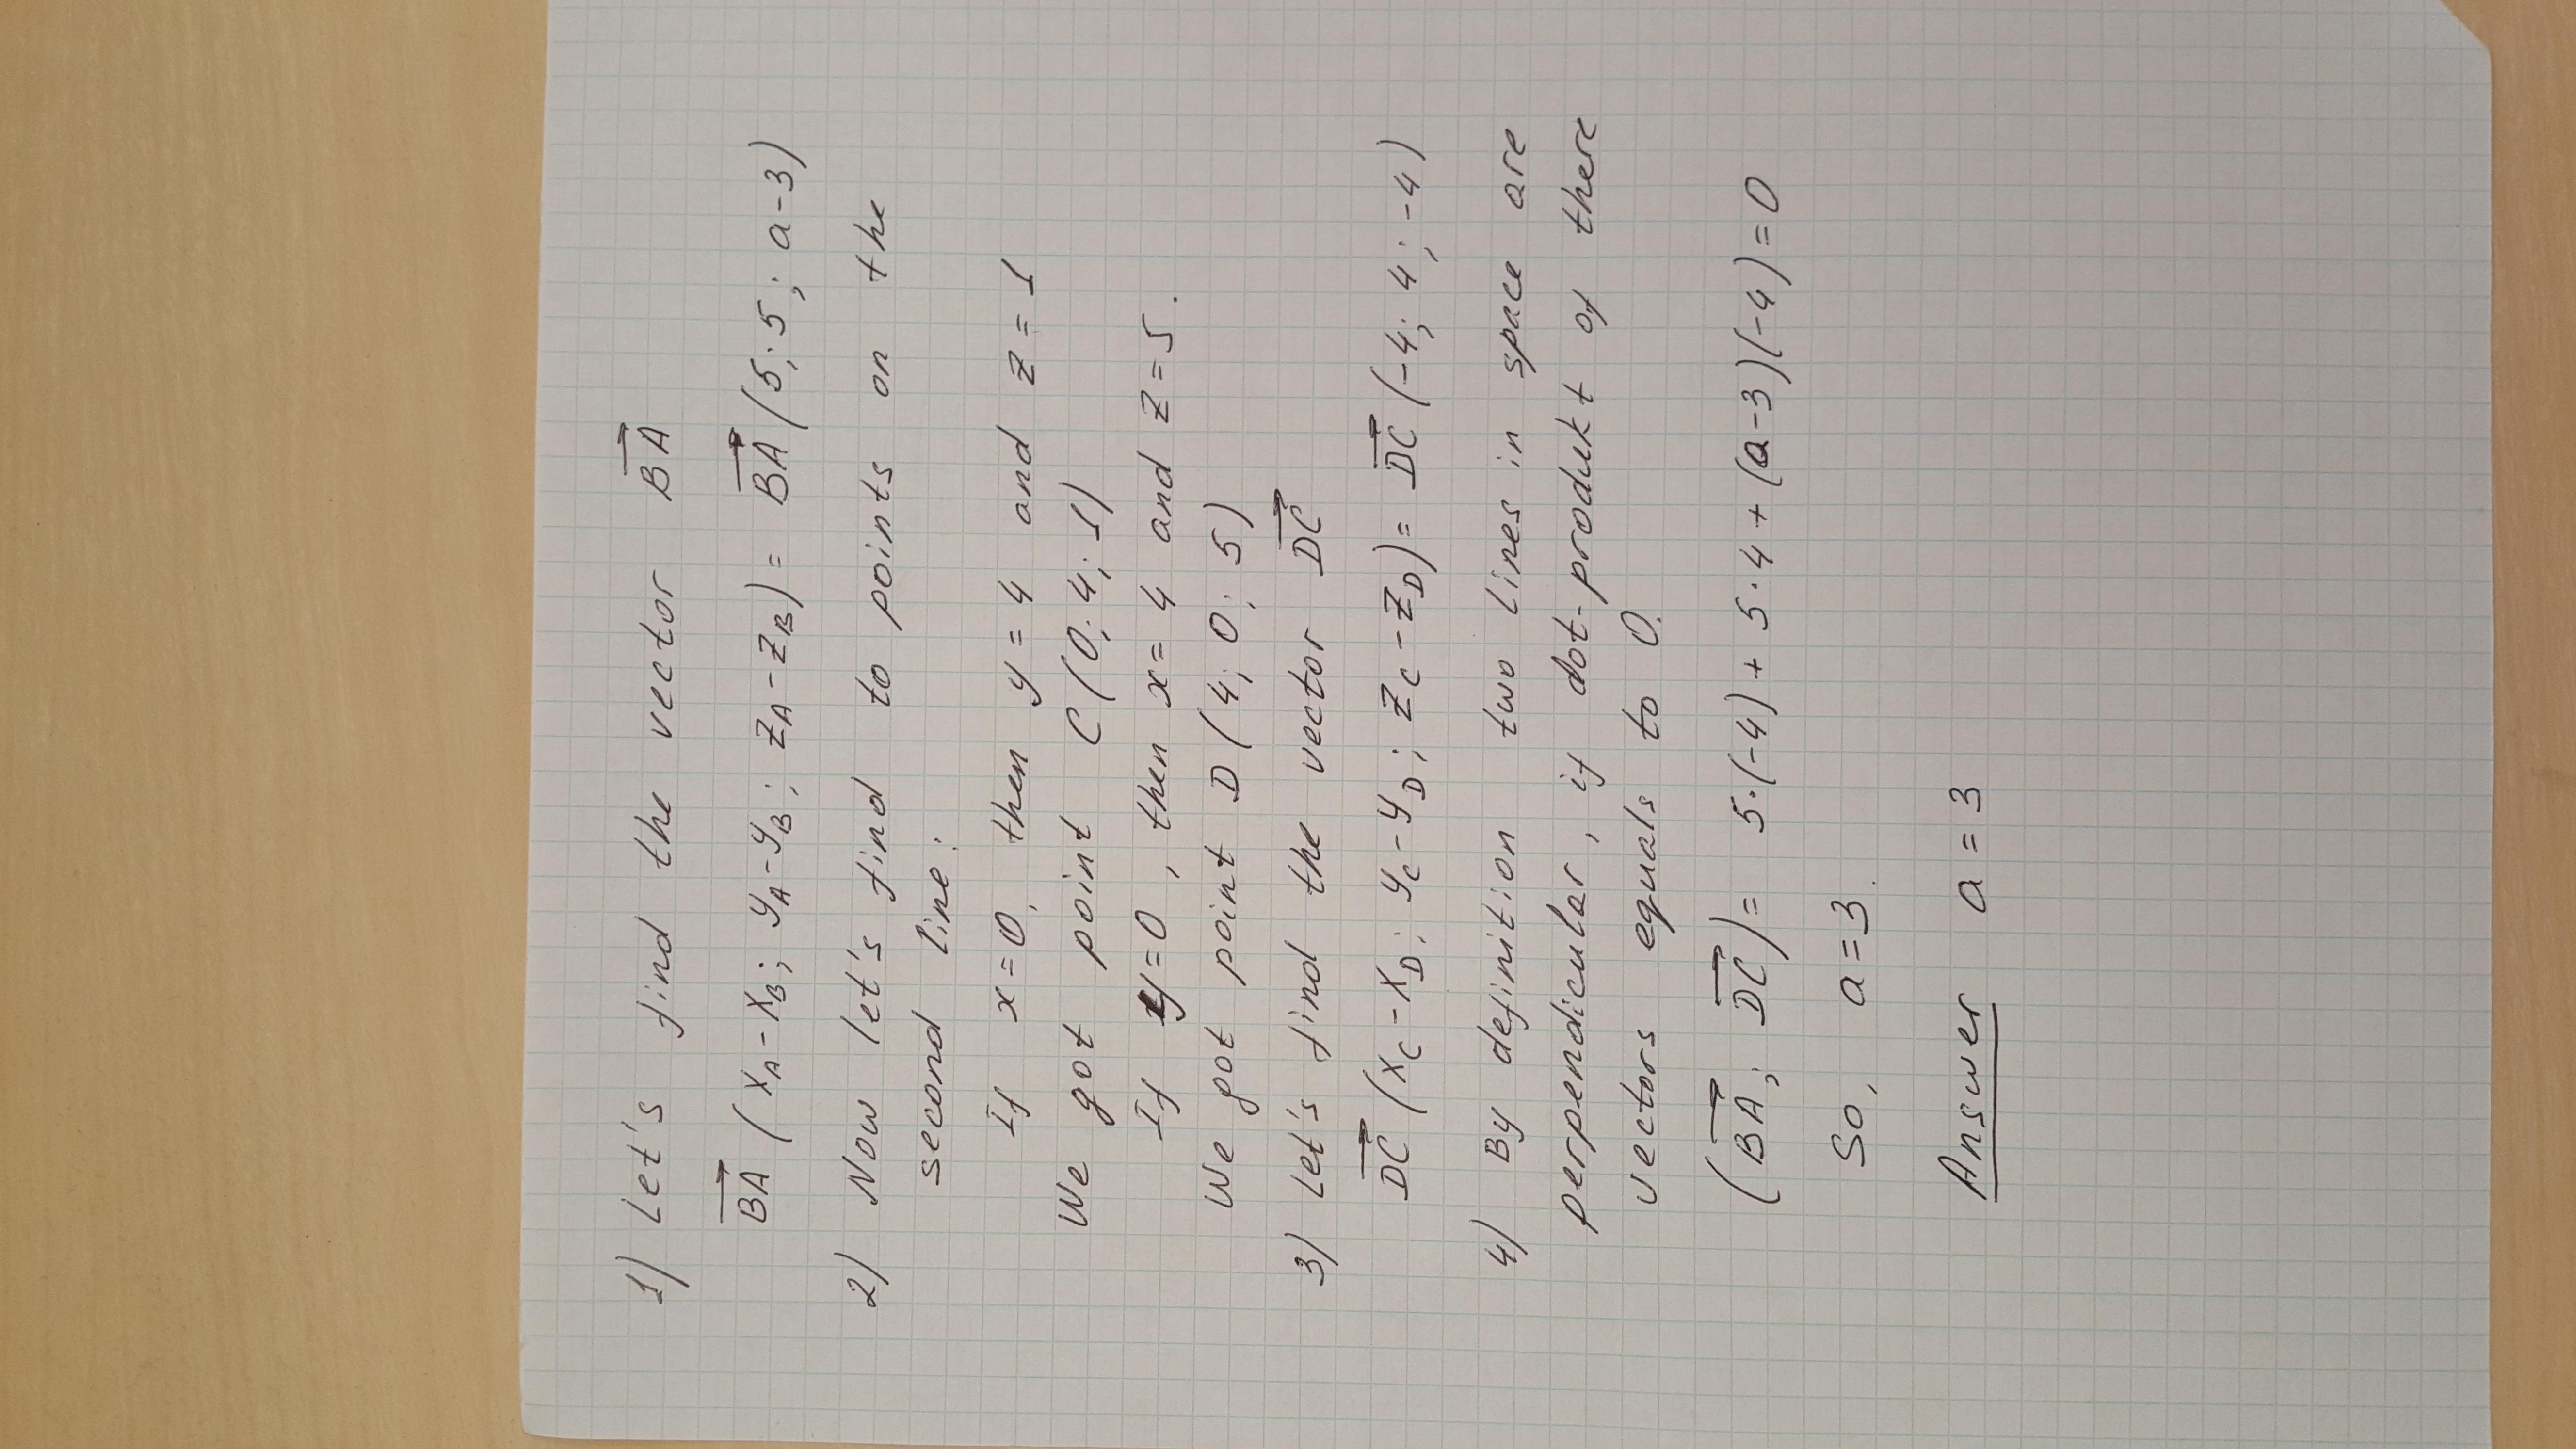 1) Let's find the vector BA
BA (xA - xB; yA - yB; zA - zB) = BA (5; 5; a-3)
2) Now let's find to points on the
second line:
If x=0, then y=4 and z=1
We got point C (0; 4; 1)
If y=0, then x=4 and z=5.
We got point D (4; 0; 5)
3) Let's find the vector DC
DC (xC - xD; yC - yD; zC - zD) = DC (-4; 4; -4)
4) By definition two lines in space are
perpendicular, if dot-produkt of there
vectors equals to 0.
(BA; DC) = 5·(-4) + 5·4 + (a-3)(-4) = 0
So, a=3.
Answer a=3